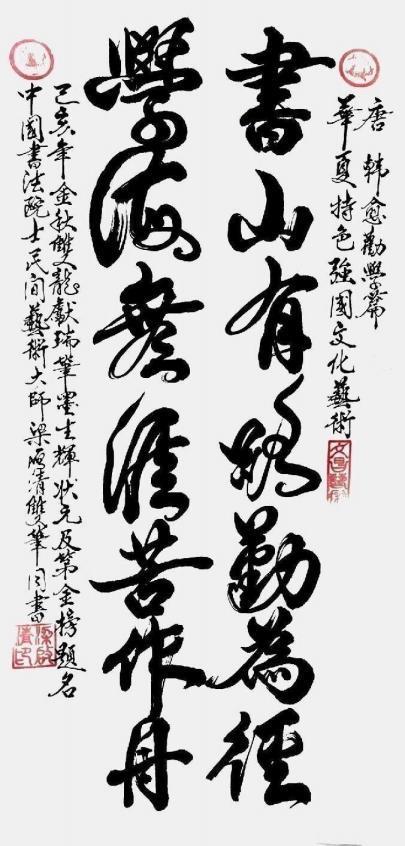 唐 韓愈勸學篇
華夏特色強國文化藝術
書山有路勤為徑
學海無涯苦作舟
己亥年金秋雙龍獻瑞筆墨生輝狀元及第金榜題名
中國書法院士民間藝術大師梁清雙筆同書